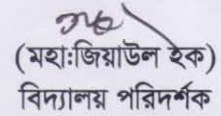 (মহা:জিয়াউল হক)
বিদ্যালয় পরিদর্শক